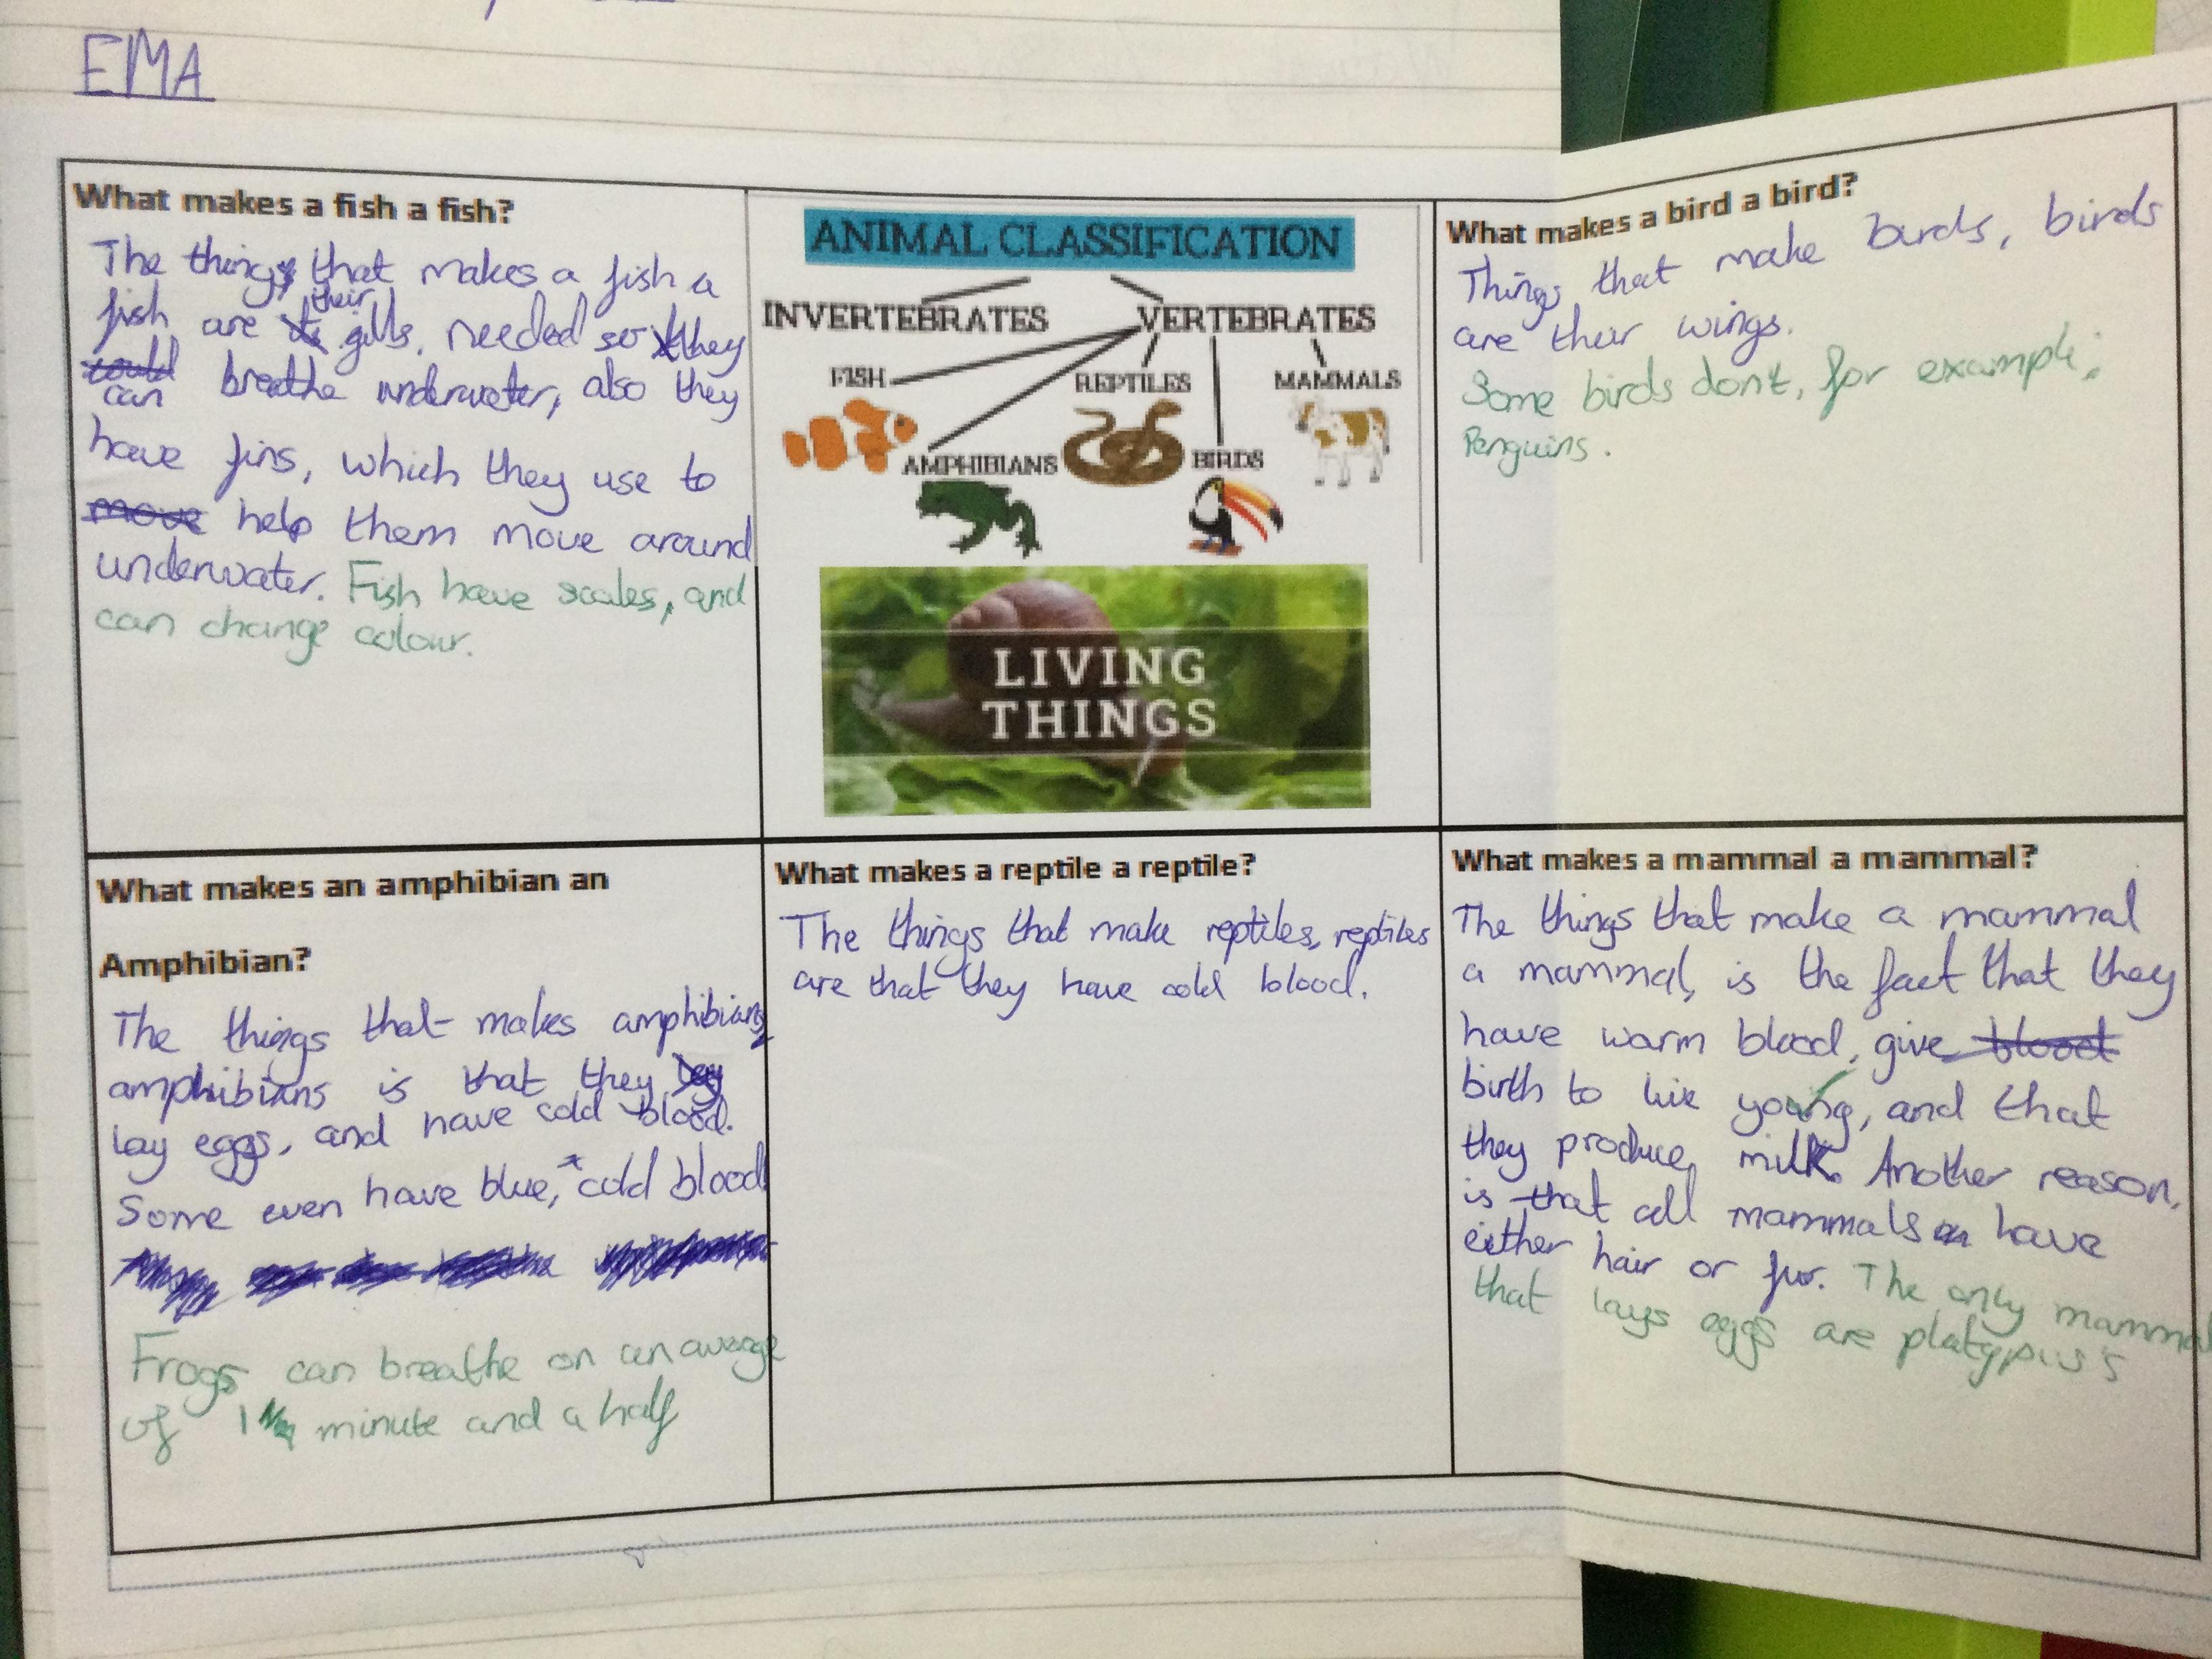 EMA
What makes a fish a fish?
The things that makes a fish a
fish are their gills, needed so they
can breathe underwater, also they
have fins, which they use to
move help them move around
underwater. Fish have scales, and
can change colour.
ANIMAL CLASSIFICATION
INVERTEBRATES VERTEBRATES
FISH REPTILES MAMMALS
AMPHIBIANS BIRDS
LIVING
THINGS
What makes a bird a bird?
Things that make birds, birds
are their wings.
Some birds don't, for example;
Penguins.
What makes an amphibian an
Amphibian?
The things that makes amphibians
amphibians is that they
lay eggs, and have cold blood.
Some even have blue, cold blood
Frogs can breathe on an average
of 1 minute and a half
What makes a reptile a reptile?
The things that make reptiles, reptiles
are that they have cold blood.
What makes a mammal a mammal?
The things that make a mammal
a mammal, is the fact that they
have warm blood, give blood
birth to live young, and that
they produce milk. Another reason,
is that all mammals have
either hair or fur. The only mammal
that lays eggs are platypus's